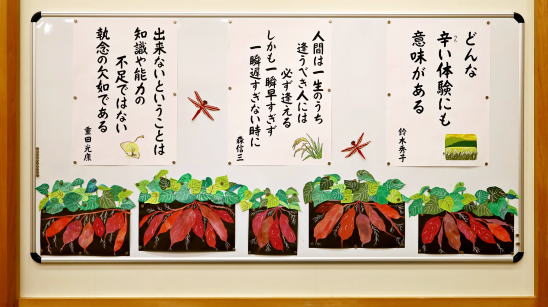 どんな
辛い体験にも
つら
意味がある
鈴木秀子
人間は一生のうち
逢うべき人には
必ず逢える
しかも一瞬早すぎず
一瞬遅すぎない時に
森信三
出来ないということは
知識や能力の
不足ではない
執念の欠如である
重田光康